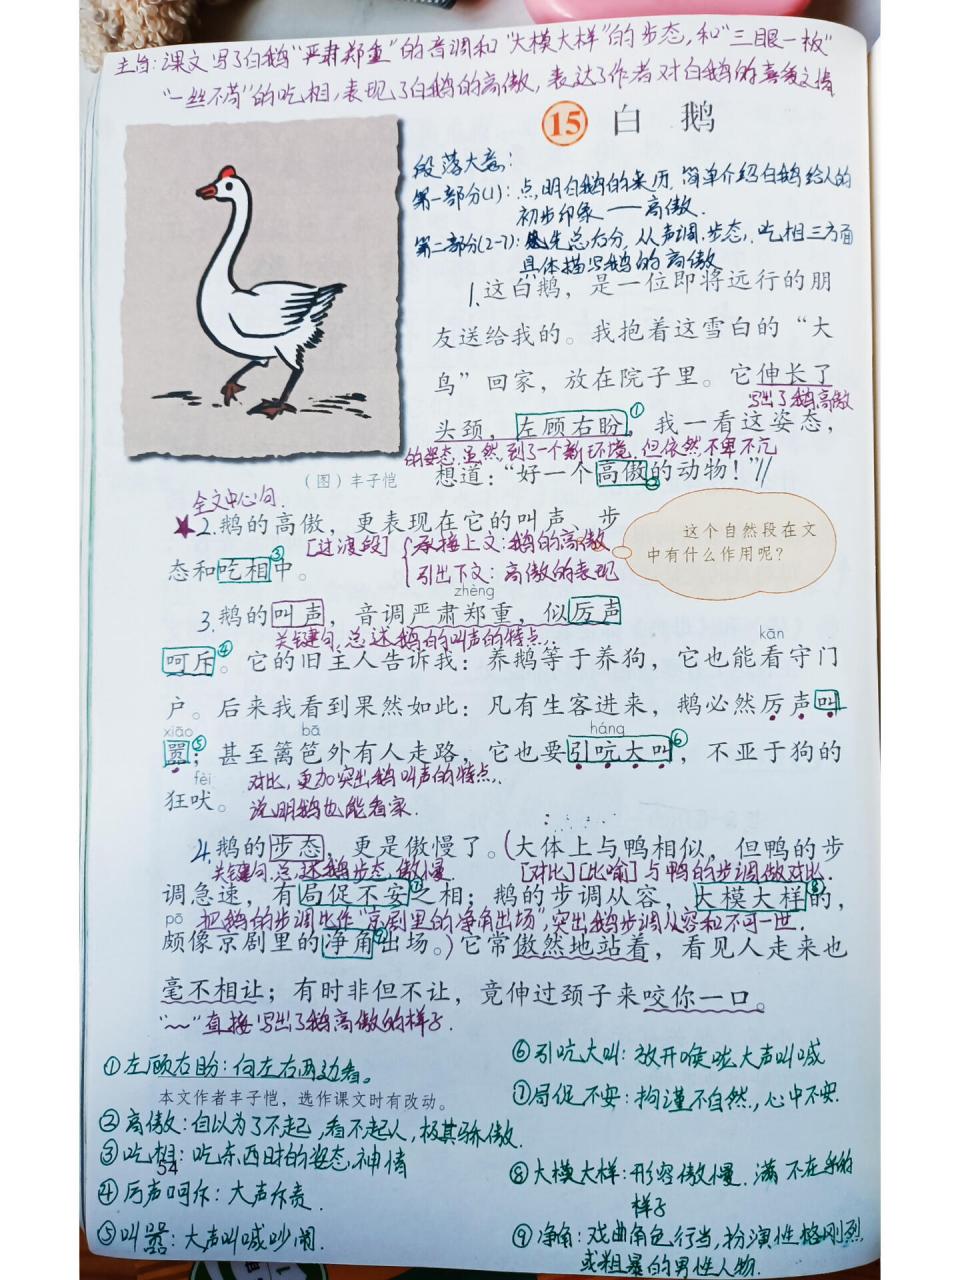 主旨:课文写了白鹅“严肃郑重”的音调和“大模大样”的步态,和“三眼一板”
“一丝不苟”的吃相,表现了白鹅的高傲,表达了作者对白鹅的喜爱之情
15 白 鹅
段落大意:
第一部分(1):点明白鹅的来历,简单介绍白鹅给人的
初步印象——高傲.
第二部分(2-7):先总后分,从声调,步态,吃相三方面
具体描写鹅的高傲
1.这白鹅,是一位即将远行的朋
友送给我的。我抱着这雪白的“大
鸟”回家,放在院子里。它伸长了
写出了鹅高傲
头颈,左顾右盼①,我一看这姿态,
的姿态,虽然到了一个新环境,但依然不卑不亢
想道:“好一个高傲②的动物!”//
(图)丰子恺
全文中心句.
★2.鹅的高傲,更表现在它的叫声、步
[过渡段] 承接上文:鹅的高傲
态和吃相③中。
引出下文:高傲的表现
这个自然段在文
中有什么作用呢?
zhèng
3.鹅的叫声,音调严肃郑重,似厉声
关键句,总述鹅的叫声的特点.
kān
呵斥④。它的旧主人告诉我:养鹅等于养狗,它也能看守门
户。后来我看到果然如此:凡有生客进来,鹅必然厉声叫
xiāo bā háng
嚣⑤;甚至篱笆外有人走路,它也要引吭大叫⑥,不亚于狗的
fèi 对比,更加突出鹅叫声的特点,
狂吠。 说明鹅也能看家.
4.鹅的步态,更是傲慢了。(大体上与鸭相似,但鸭的步
关键句,总述鹅步态,傲慢 [对比][比喻]与鸭的步调做对比.
调急速,有局促不安⑦之相;鹅的步调从容,大模大样⑧的,
pō 把鹅的步调比作“京剧里的净角出场”,突出鹅步调从容和不可一世.
颇像京剧里的净角⑨出场。)它常傲然地站着,看见人走来也
毫不相让;有时非但不让,竟伸过颈子来咬你一口。
“~~”直接写出了鹅高傲的样子.
①左顾右盼:向左右两边看。
⑥引吭大叫:放开喉咙大声叫喊
本文作者丰子恺,选作课文时有改动。
⑦局促不安:拘谨不自然,心中不安.
②高傲:自以为了不起,看不起人,极其骄傲.
③吃相:吃东西时的姿态,神情
54
④厉声呵斥:大声斥责.
⑧大模大样:形容傲慢、满不在乎的
样子
⑤叫嚣:大声叫喊吵闹.
⑨净角:戏曲角色行当,扮演性格刚烈
或粗暴的男性人物.